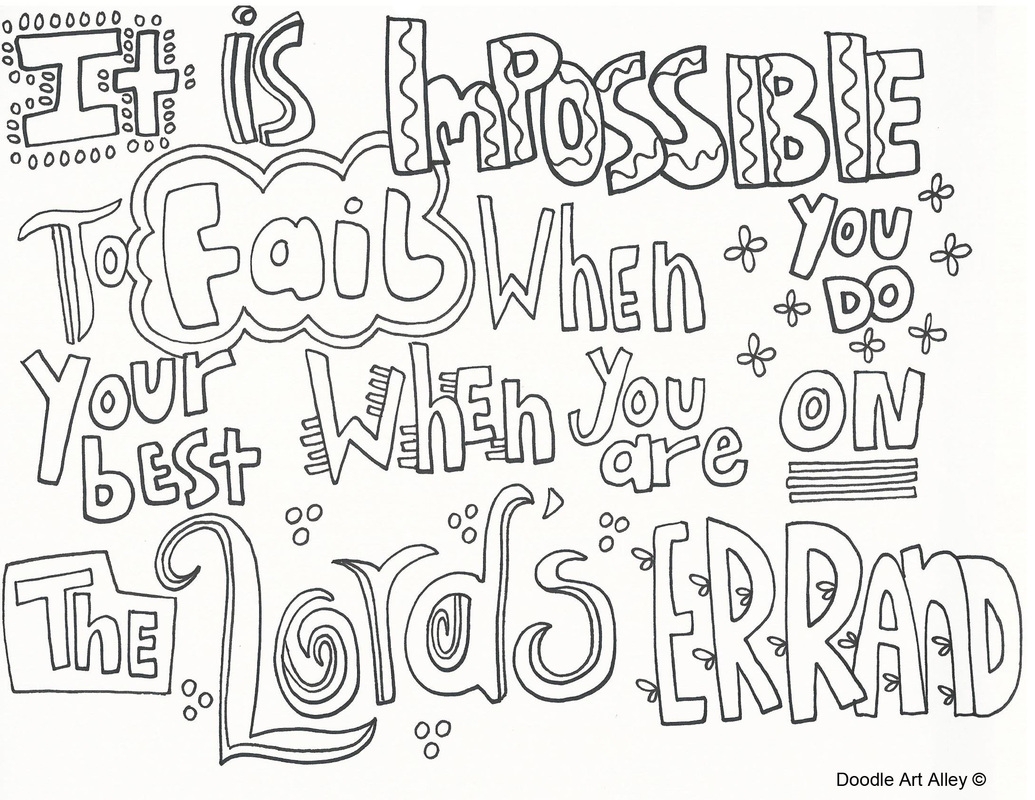 It is ImPOSSIBlE
To Fail When You
DO
Your best When you are ON
The Lord's ERRAnD
Doodle Art Alley ©